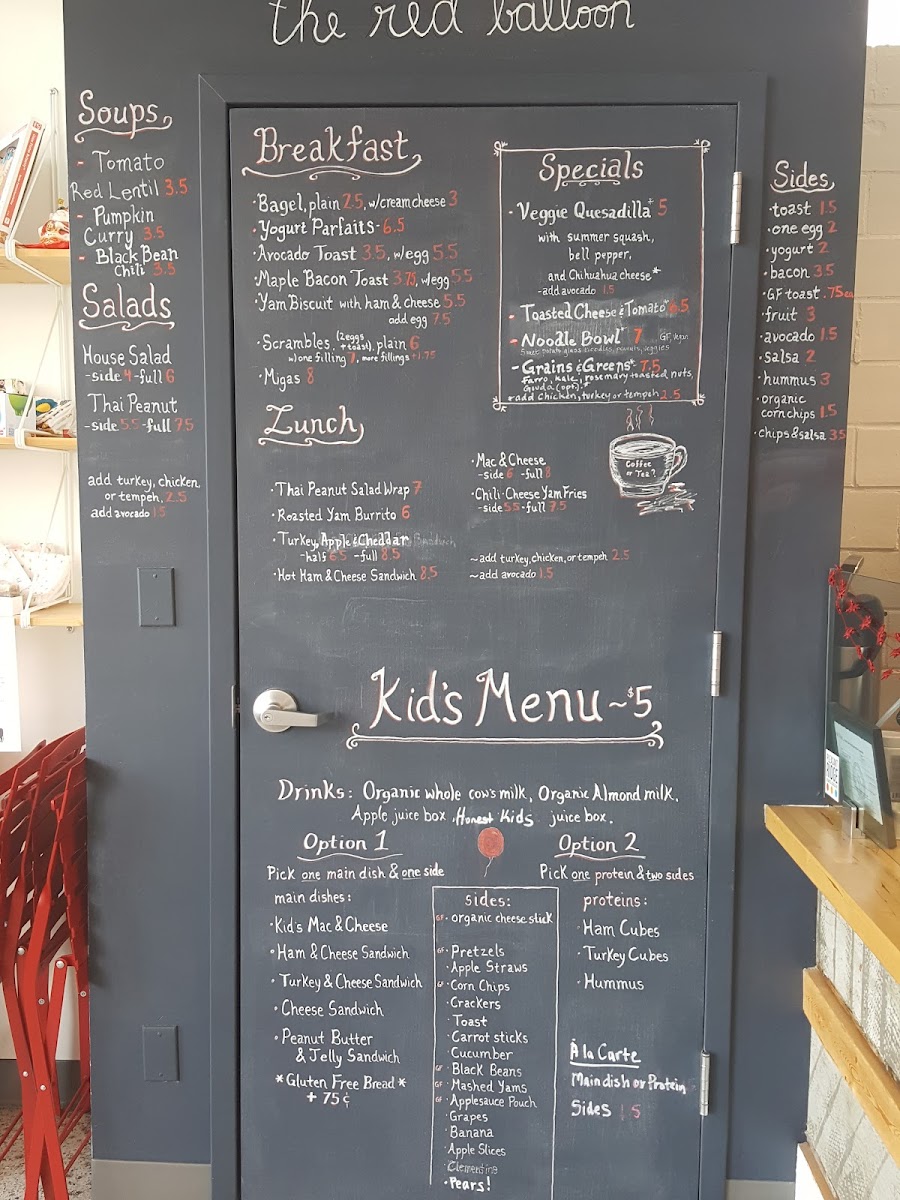 the red balloon
Soups
- Tomato
Red Lentil 3.5
- Pumpkin
Curry 3.5
- Black Bean
Chili 3.5
Salads
House Salad
-side 4 -full 6
Thai Peanut
-side 5.5 -full 7.5
add turkey, chicken,
or tempeh, 2.5
add avocado 1.5
Breakfast
·Bagel, plain 2.5, w/cream cheese 3
·Yogurt Parfaits- 6.5
·Avocado Toast 3.5, w/egg 5.5
·Maple Bacon Toast 3.75, w/egg 5.5
·Yam Biscuit with ham & cheese 5.5
add egg 7.5
·Scrambles, (2 eggs + toast), plain 6
w/ one filling 7, more fillings +1.75
·Migas 8
Specials
·Veggie Quesadilla+ 5
with summer squash,
bell pepper,
and Chihuahua cheese*
-add avocado 1.5
- Toasted Cheese & Tomato* 6.5
- Noodle Bowl* 7 GF, Vegan
Sweet potato glass noodles, peanuts, veggies
- Grains & Greens* 7.5
Farro, Kale, rosemary toasted nuts,
Gouda (opt).*
*add chicken, turkey or tempeh 2.5
Sides
·toast 1.5
·one egg 2
·yogurt 2
·bacon 3.5
·GF toast .75ea
·fruit 3
·avocado 1.5
·salsa 2
·hummus 3
·organic
corn chips 1.5
·chips & salsa 3.5
Coffee
or Tea?
Lunch
·Thai Peanut Salad Wrap 7
·Roasted Yam Burrito 6
·Turkey, Apple & Cheddar Sandwich
-half 6.5 -full 8.5
·Hot Ham & Cheese Sandwich 8.5
·Mac & Cheese
-side 6 -full 8
·Chili-Cheese Yam Fries
-side 5.5 -full 7.5
~add turkey, chicken, or tempeh 2.5
~add avocado 1.5
Kid's Menu ~$5
Drinks: Organic whole cow's milk, Organic Almond milk,
Apple juice box, Honest Kids juice box.
Option 1
Pick one main dish & one side
main dishes:
·Kid's Mac & Cheese
·Ham & Cheese Sandwich
·Turkey & Cheese Sandwich
·Cheese Sandwich
·Peanut Butter
& Jelly Sandwich
*Gluten Free Bread*
+ 75¢
sides:
GF· organic cheese stick
GF· Pretzels
·Apple Straws
GF· Corn Chips
·Crackers
·Toast
·Carrot sticks
·Cucumber
GF· Black Beans
GF· Mashed Yams
GF· Applesauce Pouch
·Grapes
·Banana
·Apple Slices
·Clementine
·Pears!
Option 2
Pick one protein & two sides
proteins:
·Ham Cubes
·Turkey Cubes
·Hummus
À la Carte
Main dish or Protein
Sides 1.5